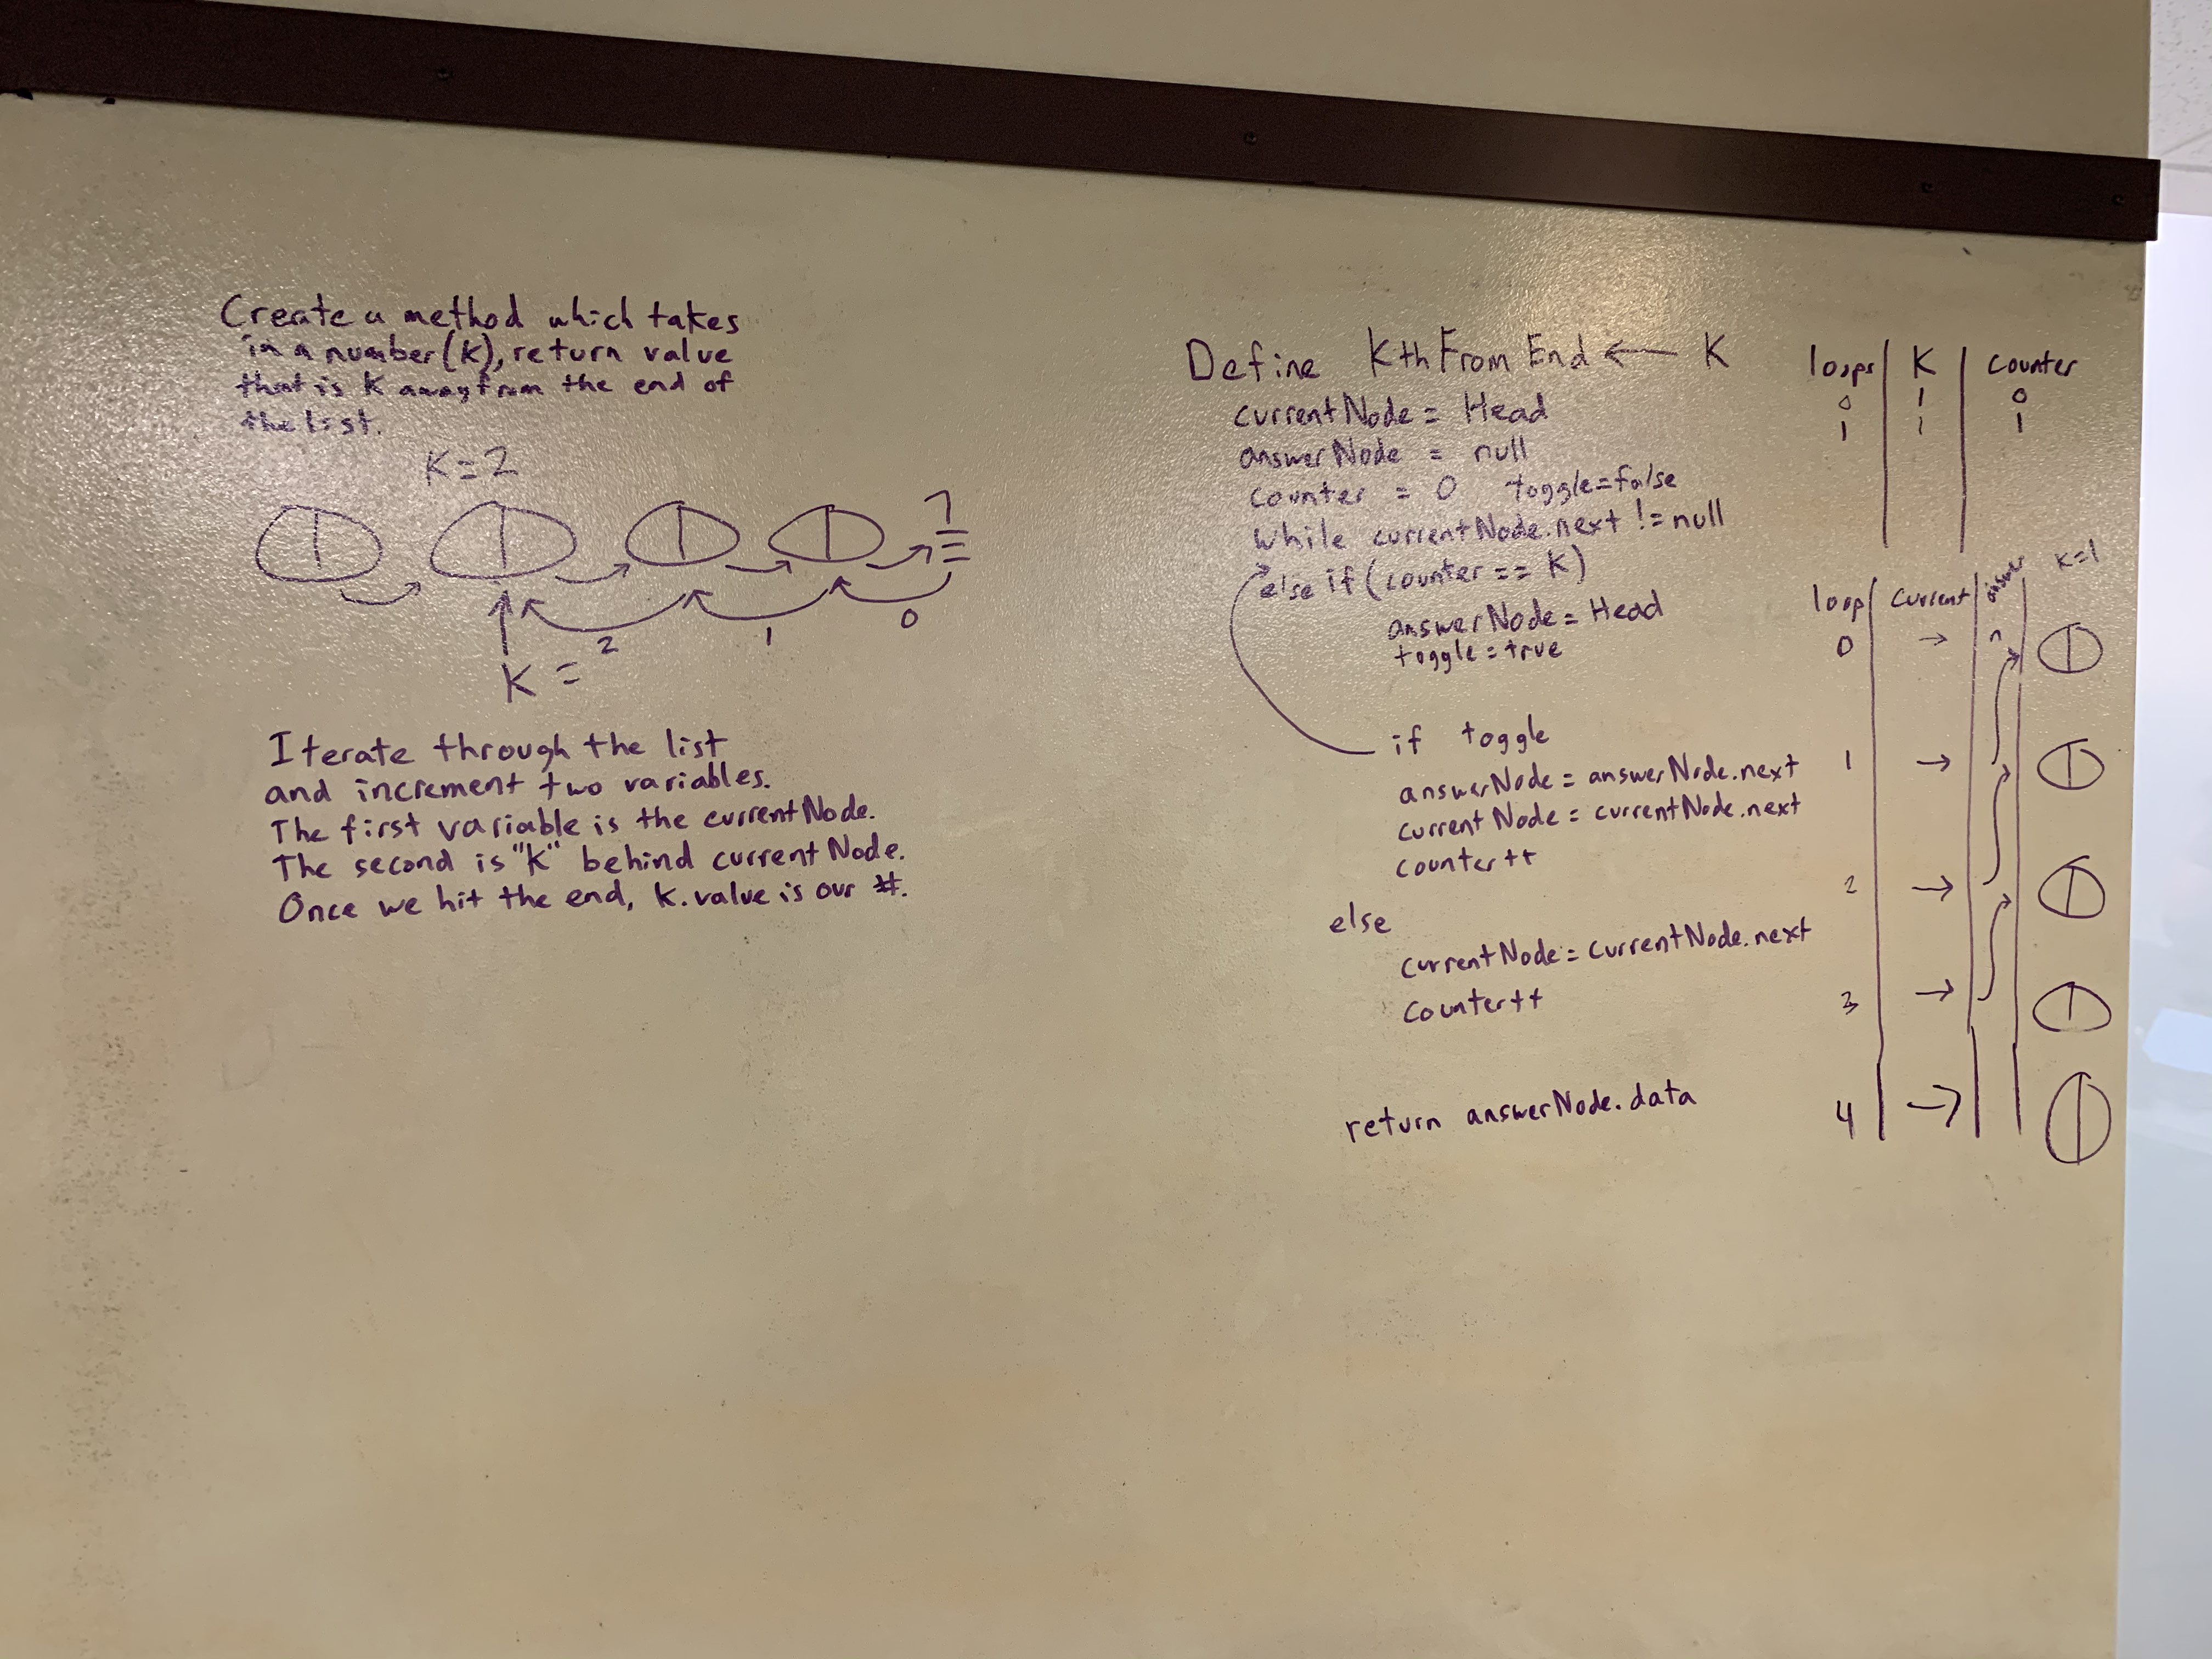 Create a method which takes
in a number (K), return value
that is K away from the end of
the list.
K=2
2
1
0
K =
Iterate through the list
and increment two variables.
The first variable is the currentNode.
The second is "K" behind currentNode.
Once we hit the end, K.value is our #.
Define KthFromEnd ← K
currentNode = Head
answerNode = null
counter = 0 toggle=false
while currentNode.next != null
else if (counter == K)
answerNode = Head
toggle = true
if toggle
answerNode = answerNode.next
currentNode = currentNode.next
counter++
else
currentNode = currentNode.next
counter++
return answerNode.data
loops | K | counter
0 1 0
1 1 1
K=1
loop | current | answer
0 → n
1 →
2 →
3 →
4 →